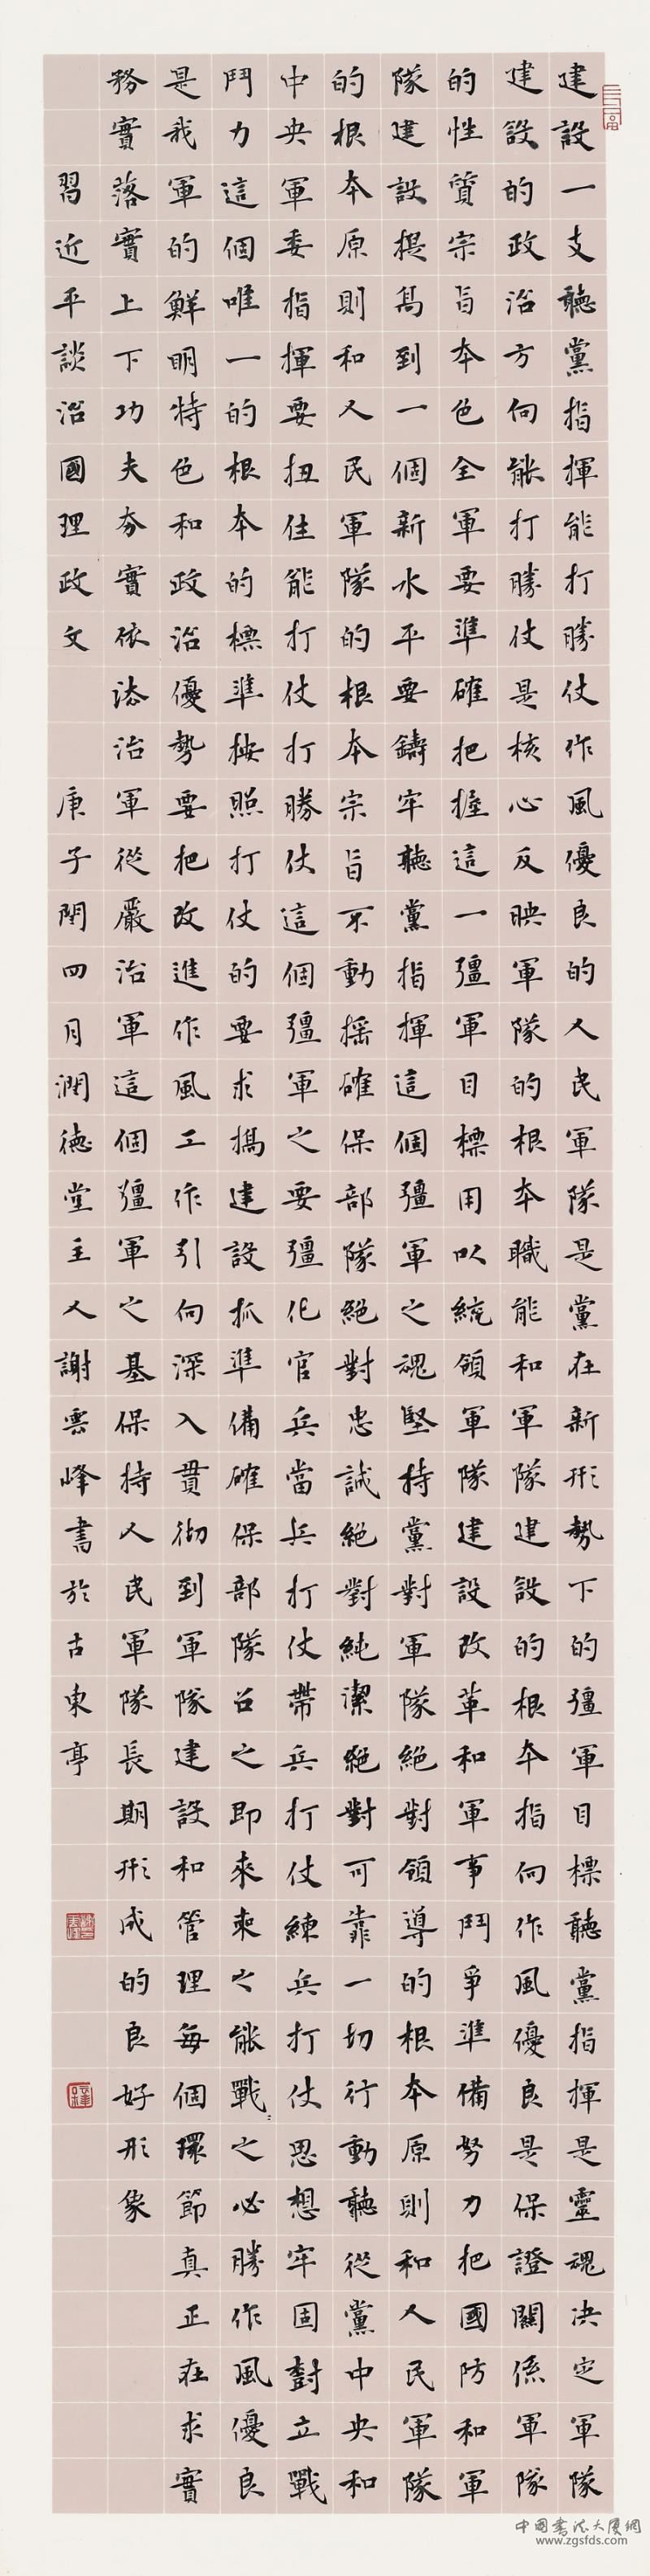 建設一支聽黨指揮能打勝仗作風優良的人民軍隊是黨在新形勢下的彊軍目標聽黨指揮是靈魂决定軍隊
建設的政治方向能打勝仗是核心反映軍隊的根本職能和軍隊建設的根本指向作風優良是保證關係軍隊
的性質宗旨本色全軍要準確把握這一彊軍目標用以統領軍隊建設改革和軍事鬥爭準備努力把國防和軍
隊建設提高到一個新水平要鑄牢聽黨指揮這個彊軍之魂堅持黨對軍隊絕對領導的根本原則和人民軍隊
的根本原則和人民軍隊的根本宗旨不動摇確保部隊絕對忠誠絕對純潔絕對可靠一切行動聽從黨中央和
中央軍委指揮要扭住能打仗打勝仗這個彊軍之要彊化官兵當兵打仗帶兵打仗練兵打仗思想牢固樹立戰
鬥力這個唯一的根本的標準按照打仗的要求搞建設抓準備確保部隊召之即來來之能戰之必勝作風優良
是我軍的鮮明特色和政治優勢要把改進作風工作引向深入貫彻到軍隊建設和管理每個環節真正在求實
務實落實上下功夫夯實依法治軍從嚴治軍這個彊軍之基保持人民軍隊長期形成的良好形象
習近平談治國理政文 庚子閏四月潤德堂主人謝雲峰書於古東亭
中国書法大厦網
www.zgsfds.com